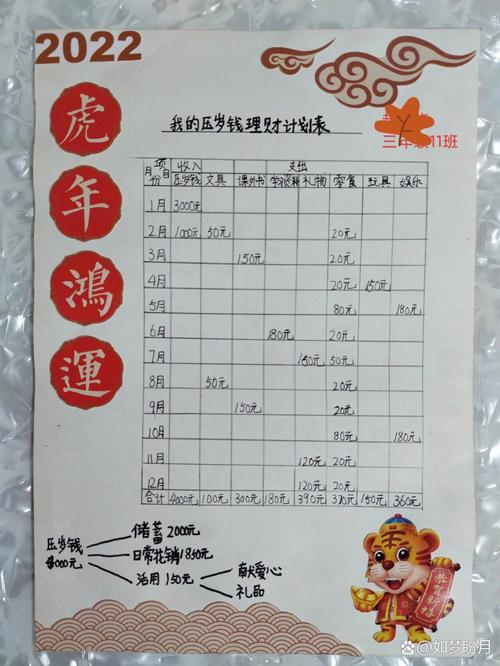 2022
虎年鴻運
我的压岁钱理财计划表
三年级11班
月份 项目 收入 支出
压岁钱 文具 课外书 学习资料 礼物 零食 玩具 娱乐
1月 3000元
2月 1000元 50元 20元
3月 150元 20元
4月 20元 150元
5月 80元 180元
6月 180元 20元
7月 150元 50元
8月 50元 20元
9月 150元 20元
10月 80元 180元
11月 120元 20元
12月 120元 20元
合计 4000元 100元 300元 180元 390元 370元 150元 360元
压岁钱 4000元
储蓄 2000元
日常花销 1850元
活用 150元
献爱心
礼品
恭贺新禧
如梦盼月